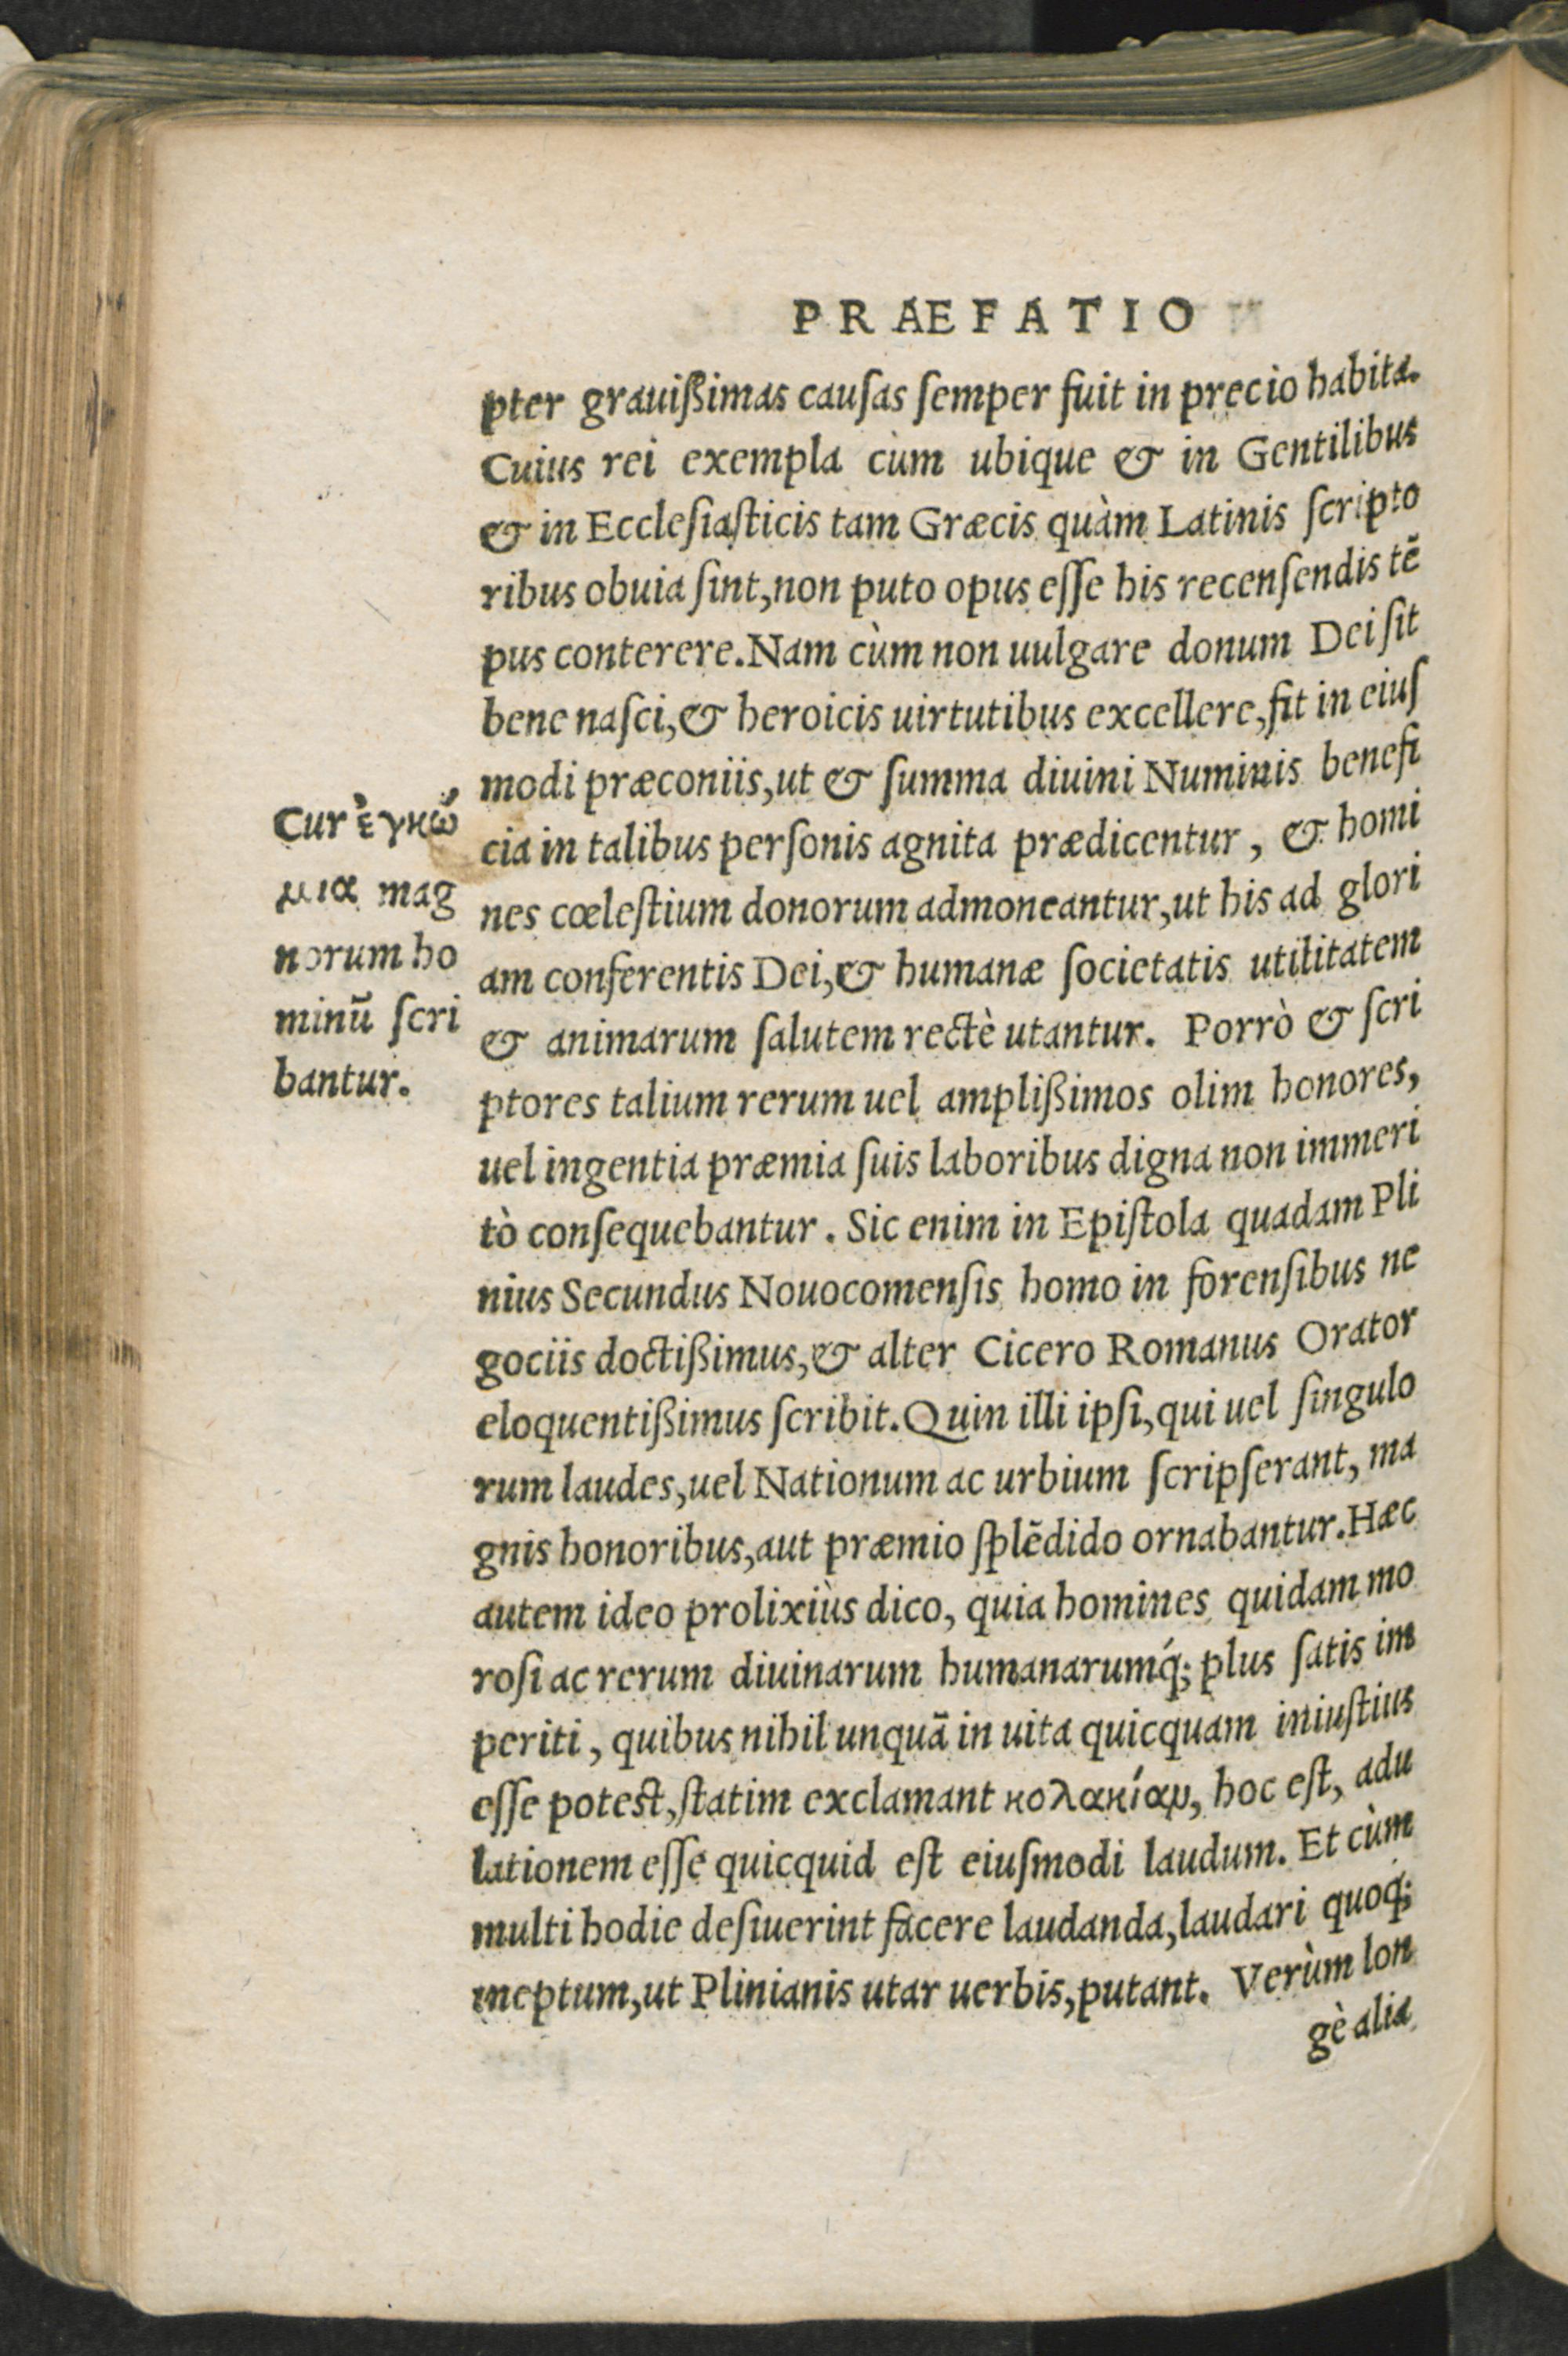 PRAEFATIO
pter grauißimas cauſas ſemper fuit in precio habita.
Cuius rei exempla cùm ubique & in Gentilibus
& in Eccleſiaſticis tam Græcis quàm Latinis ſcripto
ribus obuia ſint, non puto opus eſſe his recenſendis tē
pus conterere. Nam cùm non uulgare donum Dei ſit
bene naſci, & heroicis uirtutibus excellere, fit in eiuſ
modi præconiis, ut & ſumma diuini Numinis benefi
cia in talibus perſonis agnita prædicentur, & homi
nes cœleſtium donorum admoneantur, ut his ad glori
am conferentis Dei, & humanæ ſocietatis utilitatem
& animarum ſalutem rectè utantur. Porrò & ſcri
ptores talium rerum uel amplißimos olim honores,
uel ingentia præmia ſuis laboribus digna non immeri
tò conſequebantur. Sic enim in Epiſtola quadam Pli
nius Secundus Nouocomenſis homo in forenſibus ne
gociis doctißimus, & alter Cicero Romanus Orator
eloquentißimus ſcribit. Quin illi ipſi, qui uel ſingulo
rum laudes, uel Nationum ac urbium ſcripſerant, ma
gnis honoribus, aut præmio ſplēdido ornabantur. Hæc
autem ideo prolixiùs dico, quia homines quidam mo
roſi ac rerum diuinarum humanarumq́; plus ſatis im
periti, quibus nihil unquā in uita quicquam iniuſtius
eſſe poteſt, ſtatim exclamant κολακίαν, hoc eſt, adu
lationem eſſe quicquid eſt eiuſmodi laudum. Et cùm
multi hodie deſiuerint facere laudanda, laudari quoq́;
ineptum, ut Plinianis utar uerbis, putant. Verùm lon
gè alia
Cur ἐγκώ
μια mag
norum ho
minū ſcri
bantur.